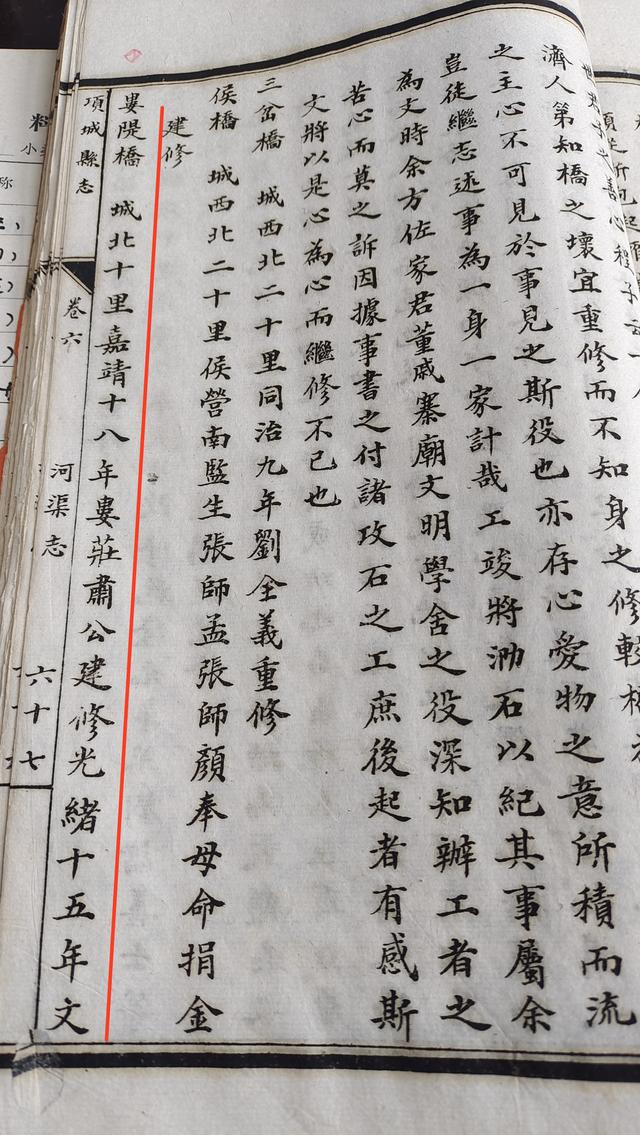 之善心程子
濟人第知橋之壞宜重修而不知身之修
之主心不可見於事見之斯役也亦存心愛物之意所積而流
豈徒繼志述事為一身一家計哉工竣將泐石以紀其事屬余
為文時余方佐家君董戚寨廟文明學舍之役深知辦工者之
苦心而莫之訴因據事書之付諸攻石之工庶後起者有感斯
文將以是心為心而繼修不已也
三岔橋 城西北二十里同治九年劉全義重修
侯橋 城西北二十里侯營南監生張師孟張師顏奉母命捐金
建修
婁隄橋 城北十里嘉靖十八年婁莊肅公建修光緒十五年文
項城縣志 卷六 河渠志 六十七
称